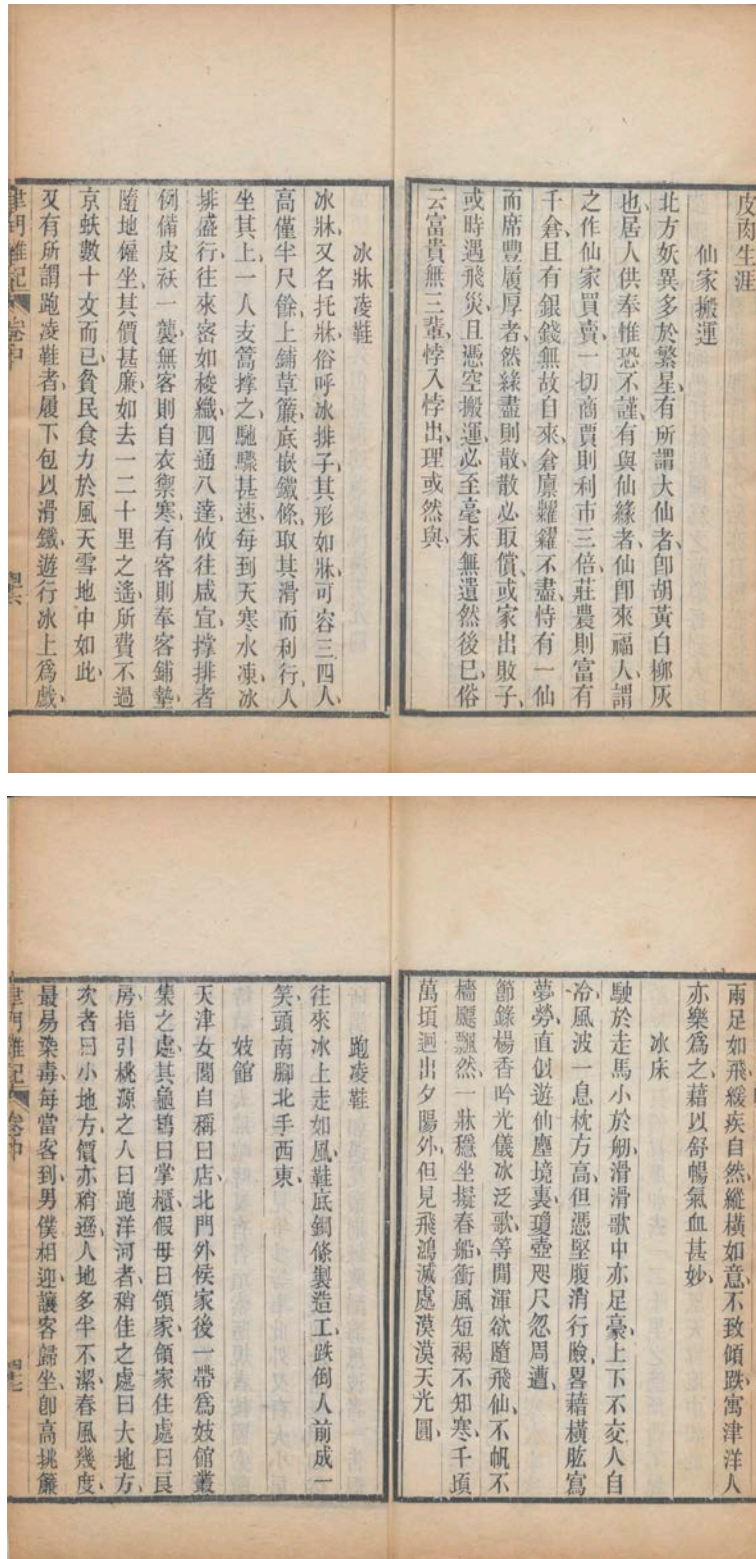 皮肉生涯
仙家搬運
北方妖異多於繁星、有所謂大仙者、卽胡黃白柳灰
也、居人供奉惟恐不謹、有與仙緣者、仙卽來福人、謂
之作仙家買賣、一切商賈則利市三倍、莊農則富有
千倉、且有銀錢無故自來、倉廪糶糴不盡、恃有一仙
而席豐履厚者、然緣盡則散、散必取償、或家出敗子、
或時遇飛災、且憑空搬運、必至毫末無遺然後已、俗
云富貴無三輩、悖入悖出、理或然與、
冰牀凌鞋
冰牀、又名托牀、俗呼冰排子、其形如牀、可容三四人、
高僅半尺餘、上鋪草簾、底嵌鐵條、取其滑而利行、人
坐其上、一人支篙撑之、馳驟甚速、每到天寒水凍、冰
排盛行、往來密如梭織、四通八達、攸往咸宜、撑排者
例備皮袄一襲、無客則自衣禦寒、有客則奉客鋪墊、
隨地僱坐、其價甚廉、如去一二十里之遙、所費不過
京蚨數十文而已、貧民食力於風天雪地中如此、
又有所謂跑凌鞋者、履下包以滑鐵、遊行冰上爲戲、
津門雜記 卷中 四六
兩足如飛、緩疾自然、縱橫如意、不致傾跌、寓津洋人
亦樂爲之、藉以舒暢氣血甚妙、
冰床
駛於走馬小於舠、滑滑歌中亦足豪、上下不交人自
冷、風波一息枕方高、但憑堅腹消行險、畧藉橫肱寫
夢勞、直似遊仙塵境裏、瓊壺咫尺忽周遭、
節錄楊香吟光儀冰泛歌、等閒渾欲隨飛仙、不帆不
檣颺飄然、一牀穩坐擬春船、衝風短褐不知寒、千頃
萬頃迥出夕陽外、但見飛鴻滅處漠漠天光圓、
跑凌鞋
往來冰上走如風、鞋底鋼條製造工、跌倒人前成一
笑、頭南腳北手西東、
妓館
天津女閭自稱曰店、北門外侯家後一帶爲妓館叢
集之處、其龜鴇曰掌櫃、假母曰領家、領家住處曰良
房、指引桃源之人曰跑洋河者、稍佳之處曰大地方、
次者曰小地方、價亦稍遜、人地多半不潔、春風幾度、
最易染毒、每當客到、男僕相迎、讓客歸坐、卽高挑簾
津門雜記 卷中 四七